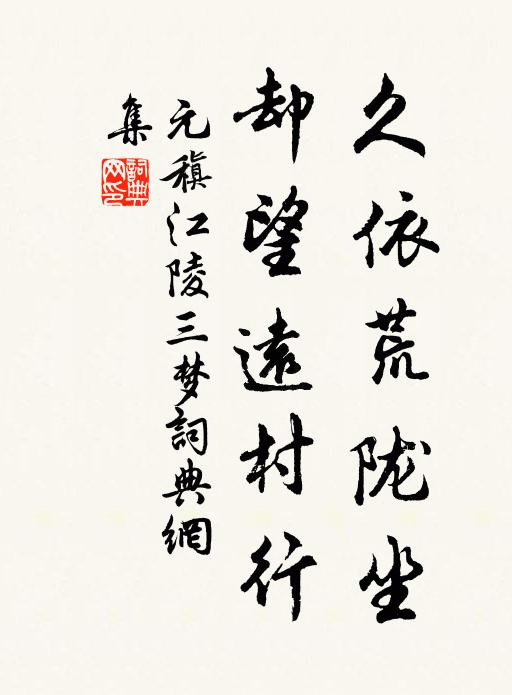 久依荒陇坐
却望遠村行
元稹江陵三梦詞典網
集
詞典
网印